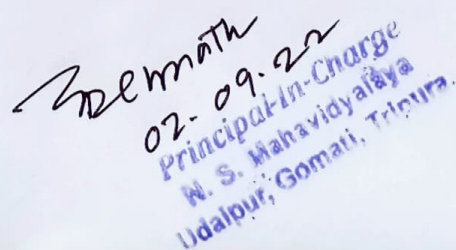 02.09.22
Principal-In-Charge
N. S. Mahavidyalaya
Udaipur, Gomati, Tripura.